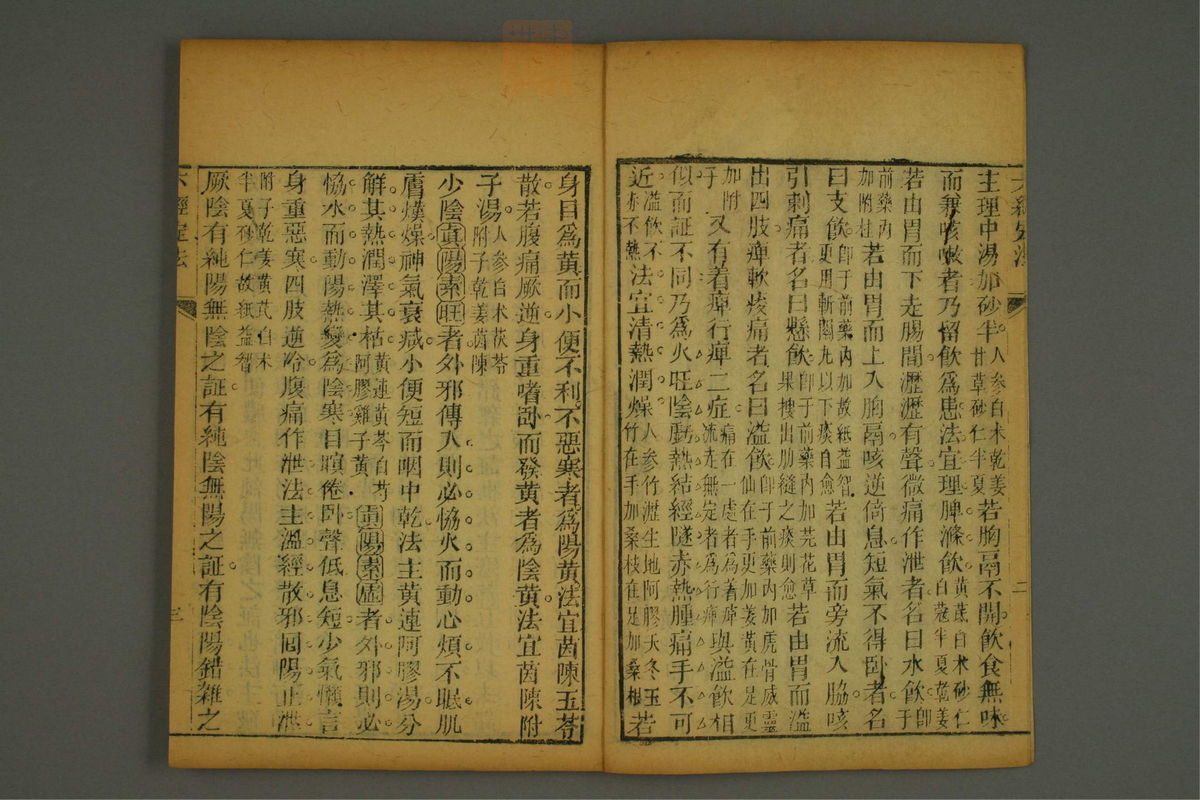 主理中湯加砂半人參白朮乾姜甘草砂仁半夏若胸鬲不開飲食無味
而兼咳嗽者乃留飲為患法宜理脾滌飲黃芪白朮砂仁白蔻半夏乾姜
若由胃而下走腸間瀝瀝有聲微痛作泄者名曰水飲即于
前藥內加附桂若由胃而上入胸鬲咳逆倚息短氣不得臥者名
曰支飲即于前藥內加故紙益智更用斬關丸以下痰自愈若由胃而旁流入脇咳
引刺痛者名曰懸飲即于前藥內加芫花草果搜出肋縫之痰則愈若由胃而溢
出四肢痺軟痠痛者名曰溢飲即于前藥內加虎骨威靈仙在手更加姜黃在足更
加附子又有着痺行痺二症痛在一處者為着痺流走無定者為行痺與溢飲相
似而証不同乃為火旺陰虧熱結經隧赤熱腫痛手不可
近溢飲不赤不熱法宜清熱潤燥人參竹瀝生地阿膠天冬玉竹在手加桑枝在足加桑根若
身目為黃而小便不利不惡寒者為陽黃法宜茵陳五苓
散若腹痛厥逆身重嗜臥而發黃者為陰黃法宜茵陳附
子湯人參白朮茯苓附子乾姜茵陳
少陰真陽素旺者外邪傳入則必恊火而動心煩不眠肌
膚熯燥神氣衰減小便短而咽中乾法主黃連阿膠湯分
解其熱潤澤其枯黃連黃芩白芍阿膠雞子黃真陽素虛者外邪則必
恊水而動陽熱變為陰寒目瞑倦臥聲低息短少氣懶言
身重惡寒四肢逆冷腹痛作泄法主溫經散邪回陽止泄
附子乾姜黃芪白朮半夏砂仁故紙益智
厥陰有純陽無陰之証有純陰無陽之証有陰陽錯雜之
六經定法
三
六經定法
二